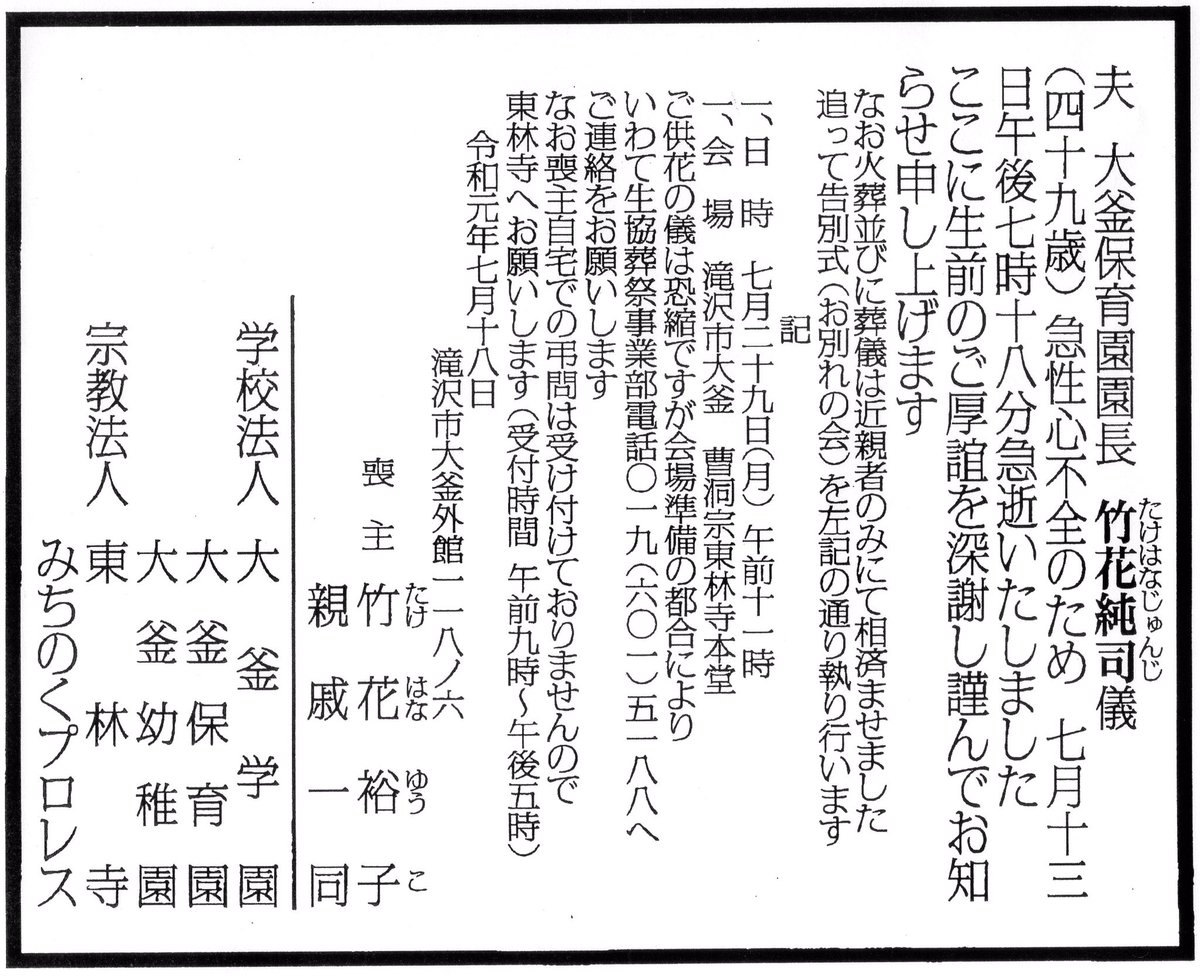 夫　大釜保育園園長　竹花純司儀
たけはなじゅんじ
（四十九歳）急性心不全のため　七月十三
日午後七時十八分急逝いたしました
ここに生前のご厚誼を深謝し謹んでお知
らせ申し上げます
なお火葬並びに葬儀は近親者のみにて相済ませました
追って告別式（お別れの会）を左記の通り執り行います
記
一、日　時　七月二十九日（月）午前十一時
一、会　場　滝沢市大釜　曹洞宗東林寺本堂
ご供花の儀は恐縮ですが会場準備の都合により
いわて生協葬祭事業部電話〇一九（六〇一）五一八八へ
ご連絡をお願いします
なお喪主自宅での弔問は受け付けておりませんので
東林寺へお願いします（受付時間　午前九時～午後五時）
令和元年七月十八日
滝沢市大釜外館一一八ノ六
喪　主　竹　花　裕　子
たけ　はな　ゆう　こ
親　戚　一　同
学校法人　大　釜　学　園
大　釜　保　育　園
大　釜　幼　稚　園
宗教法人　東　林　寺
みちのくプロレス